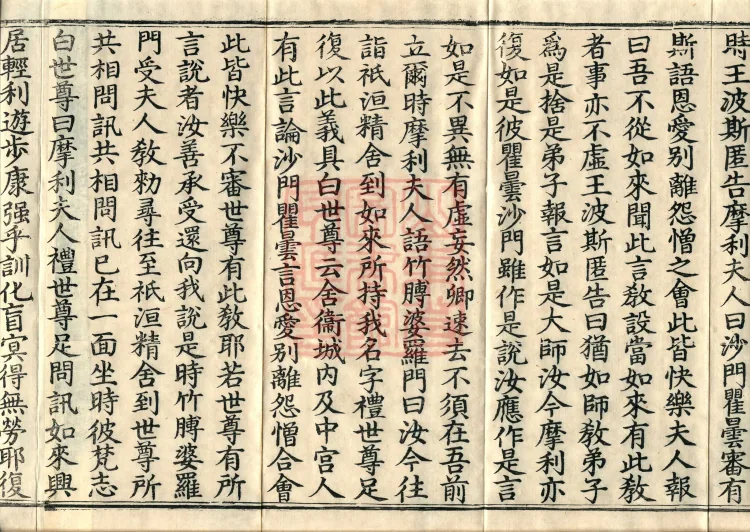 時王波斯匿告摩利夫人曰沙門瞿曇審有
斯語恩愛別離怨憎之會此皆快樂夫人報
曰吾不從如來聞此言教設當如來有此教
者事亦不虛王波斯匿告曰猶如師教弟子
為是捨是弟子報言如是大師汝今摩利亦
復如是彼瞿曇沙門雖作是說汝應作是言
如是不異無有虛妄然卿速去不須在吾前
立爾時摩利夫人語竹膊婆羅門曰汝今往
詣祇洹精舍到如來所持我名字禮世尊足
復以此義具白世尊云舍衞城內及中宮人
有此言論沙門瞿曇言恩愛別離怨憎合會
此皆快樂不審世尊有此教耶若世尊有所
言說者汝善承受還向我說是時竹膊婆羅
門受夫人教勑尋往至祇洹精舍到世尊所
共相問訊共相問訊已在一面坐時彼梵志
白世尊曰摩利夫人禮世尊足問訊如來興
居輕利遊步康强乎訓化盲冥得無勞耶復